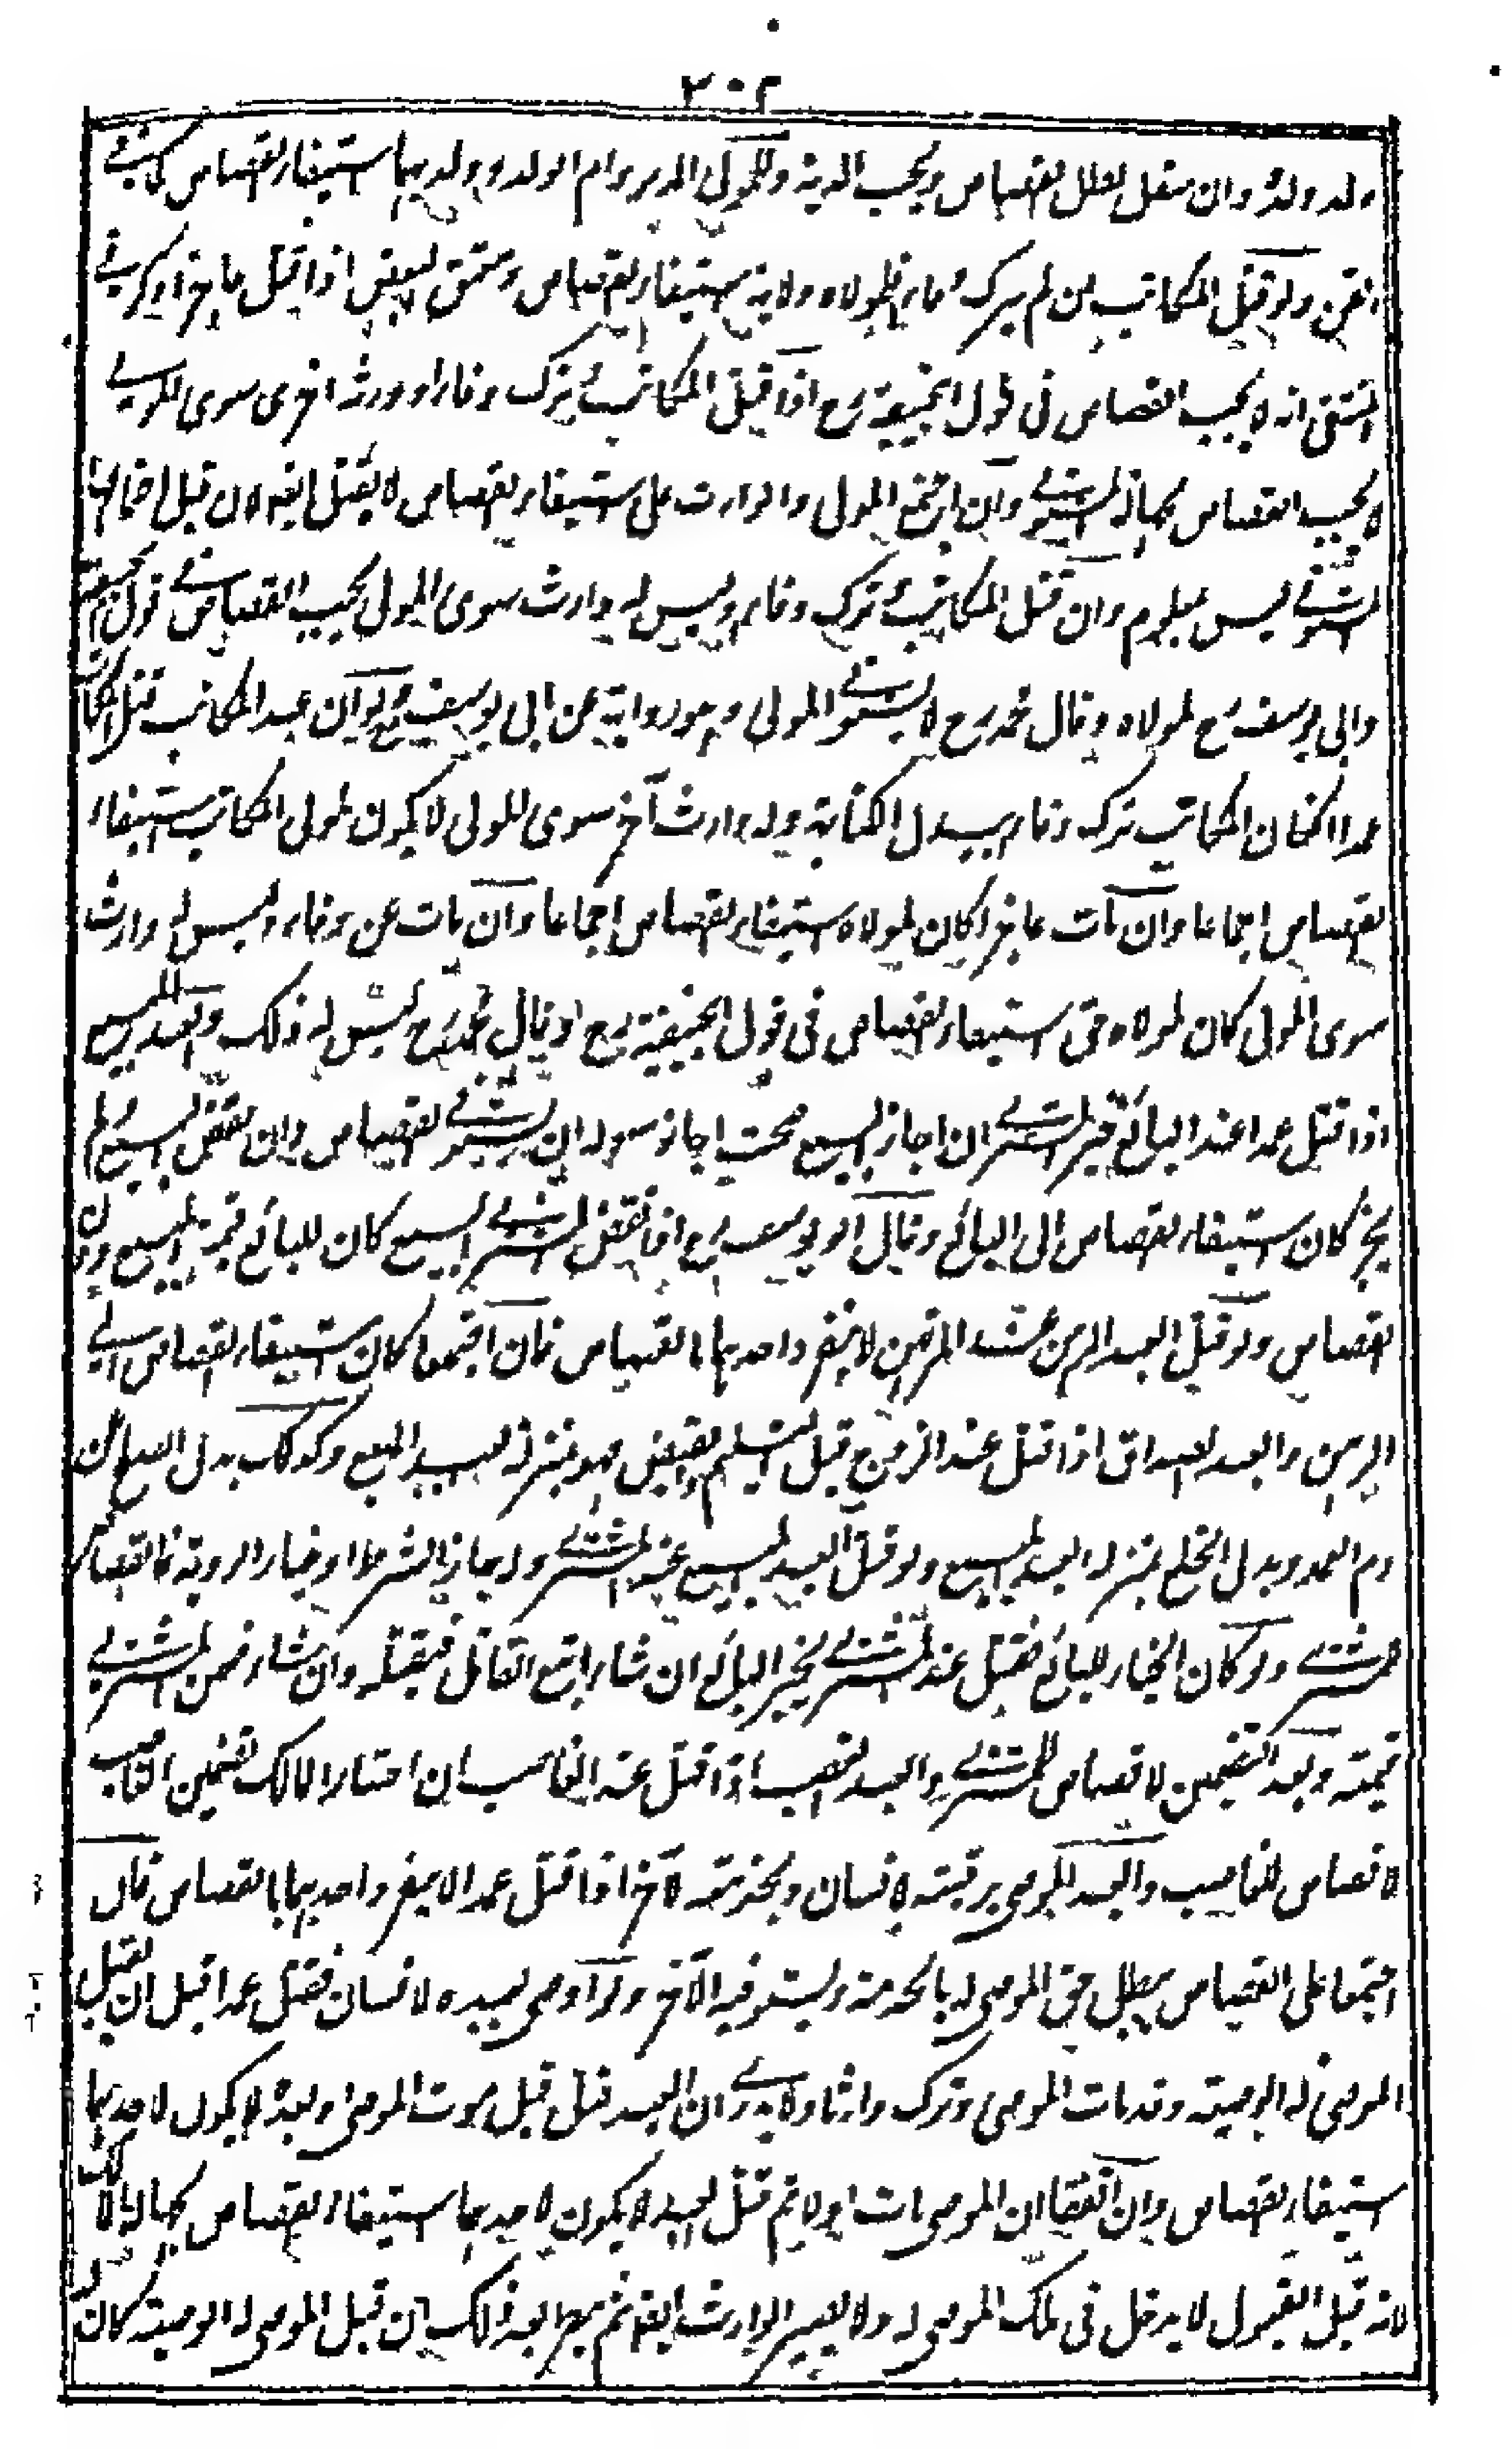 ٣٠٢
ولد ولده وان سفل يبطل القصاص ويجب الدية وللمولى المدبر وام الولد وولديهما استيفاء القصاص كما في
القن ولو قتل المكاتب من لم يترك وفاء فلمولاه ولاية استيفاء القصاص ومعتق البعض اذا قتل عاجزا ذكر في
المنتقى انه لا يجب القصاص في قول ابيحنيفة رح اذا قتل المكاتب ترك وفاء او ورثة اخرى سوى المولى
لا يجب القصاص لجهالة المستوفي وان اجتمع المولى والوارث على استيفاء القصاص لا يقتل ايضا لان قبل اجتماعهما
المستوفي ليس بمعلوم وان قتل المكاتب ترك وفاء وليس له وارث سوى المولى يجب القصاص في قول ابيحنيفة
وابي يوسف رح لمولاه وقال محمد رح لا يستوفي المولى وهو رواية عن ابي يوسف رح ولو ان عبد المكاتب قتل
عمدا ان كان المكاتب ترك وفاء ببدل الكتابة وله وارث آخر سوى المولى لا يكون لمولى المكاتب استيفاء
القصاص اجماعا وان مات عاجزا كان لمولاه استيفاء القصاص اجماعا وان مات عن وفاء وليس له وارث
سوى المولى كان لمولاه حق استيفاء القصاص في قول ابيحنيفة رح وقال محمد رح ليس له ذلك والعبد المبيع
اذا قتل عمدا عند البائع خير المشتري ان اجاز البيع صحت اجازته وله ان يستوفي القصاص وان نقض البيع ولم
يجز كان استيفاء القصاص الى البائع وقال ابو يوسف رح اذا نقض المشتري البيع كان للبائع قيمة المبيع دون
القصاص ولو قتل العبد الرهن عند المرتهن لا ينفرد احدهما بالقصاص فان اجتمعا كان استيفاء القصاص الى
الراهن والعبد الصداق اذا قتل عند الزوج قبل التسليم والقبض فهو بمنزلة العبد المبيع وكذلك بدل الصلح عن
دم العمد وبدل الخلع بمنزلة العبد المبيع ولو قتل العبد المبيع عند المشتري وله خيار الشرط او خيار الروية فالقصاص
للمشتري ولو كان الخيار للبائع فقتل عند المشتري يخير البائع ان شاء اتبع القاتل فيقتله وان شاء ضمن المشتري
قيمته وبعد التضمين لا قصاص للمشتري والعبد الغصب اذا قتل عند الغاصب ان اختار المالك تضمين الغاصب
لا قصاص للغاصب والعبد الموصى برقبته لانسان وبخدمته لآخر اذا قتل عمدا لا ينفرد احدهما بالقصاص فان
اجتمعا على القصاص يبطل حق الموصى له بالخدمة ويستوفيه الآخر ولو اوصى بعبده لانسان فقتل عمدا قبل ان يقبل
الموصى له الوصية وقد مات الموصي وترك وارثا ولا يدرى ان العبد قتل قبل موت الموصي او بعده لا يكون لاحدهما
استيفاء القصاص وان اتفقا ان الموصي مات اولا ثم قتل العبد لا يكون لاحدهما استيفاء القصاص لجهالة المالك
لانه قبل القبول لا يدخل في ملك الموصى له ولا يصير للوارث ايضا ثم بعد ذلك ان قبل الموصى له الوصية كان